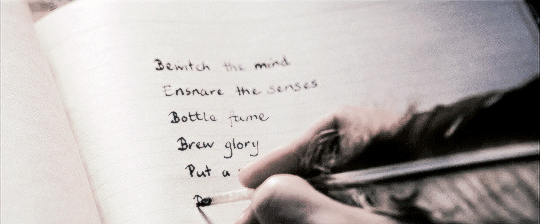 Bewitch the mind
Ensnare the senses
Bottle fame
Brew glory
Put a